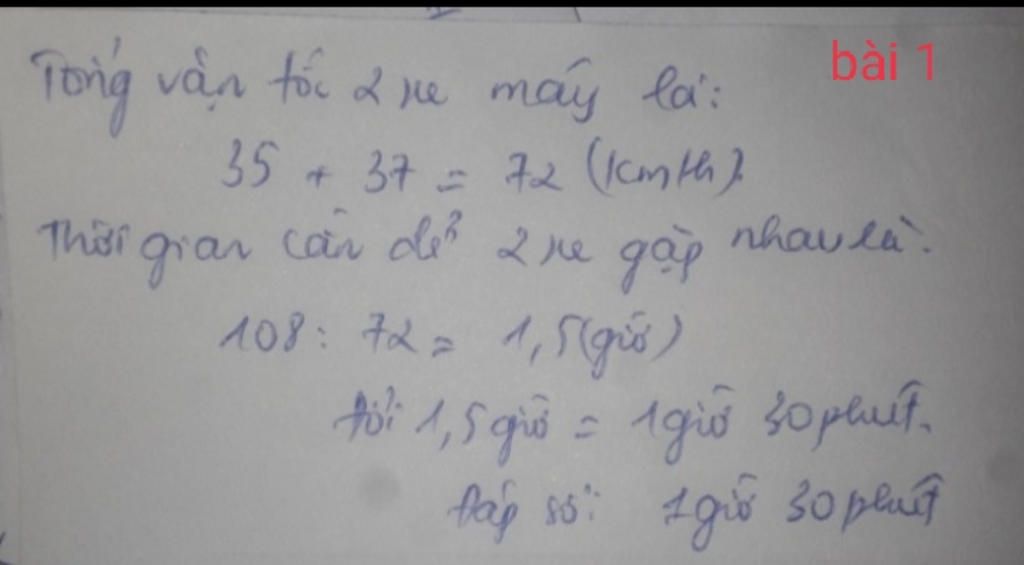 bài 1
Tổng vận tốc 2 xe máy là:
35 + 37 = 72 (km/h).
Thời gian cần để 2 xe gặp nhau là.
108 : 72 = 1,5 (giờ)
đổi 1,5 giờ = 1 giờ 30 phút.
Đáp số: 1 giờ 30 phút